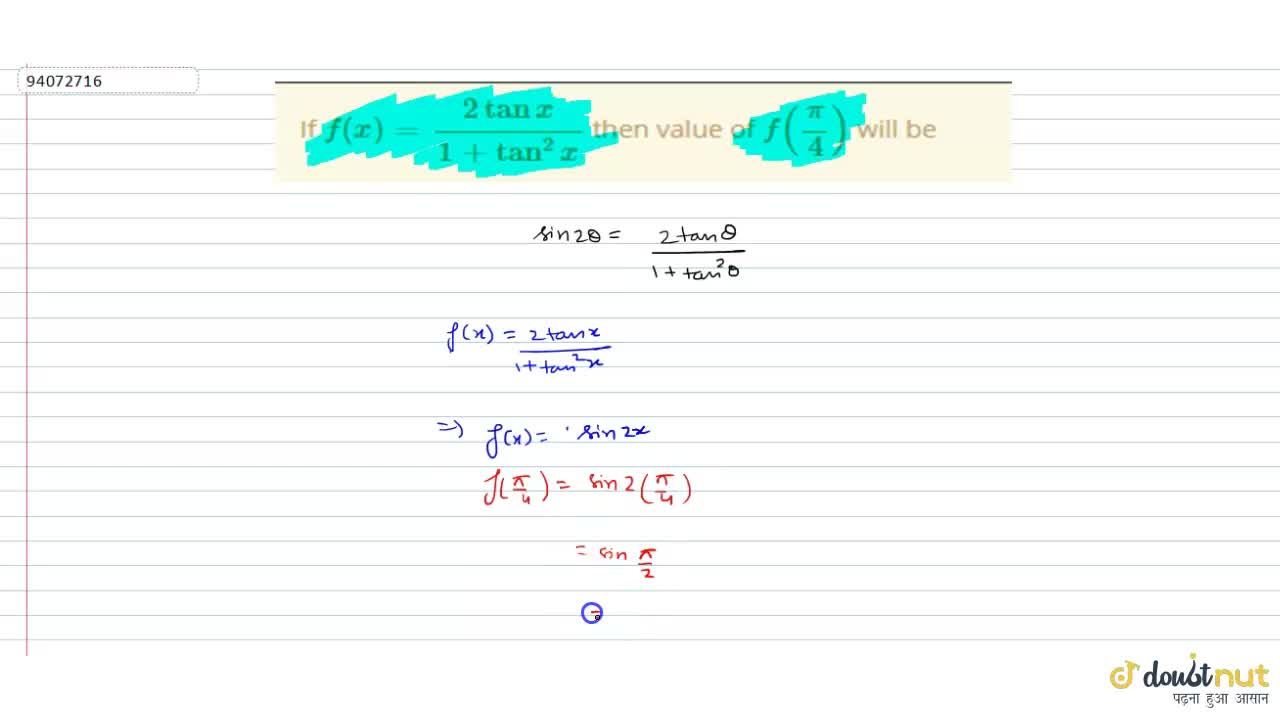 94072716
If f(x) = \frac{2 tan x}{1 + tan² x} then value of f(\frac{π}{4}) will be
sin2θ = \frac{2tanθ}{1+tan²θ}
f(x) = \frac{2tanx}{1+tan²x}
=) f(x) = sin2x
f(\frac{π}{4}) = sin2(\frac{π}{4})
= sin \frac{π}{2}
=
doubtnut
पढ़ना हुआ आसान